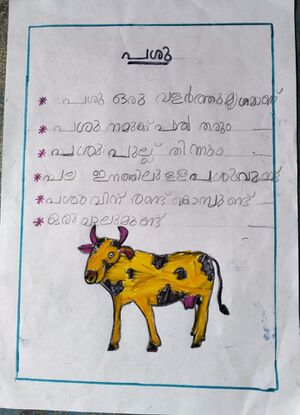 പശു
പശു ഒരു വളർത്തുമൃഗമാണ്
പശു നമുക്ക് പാൽ തരും
പശു പുല്ല് തിന്നും
പല ഇനത്തിലുള്ള പശുവുണ്ട്
പശുവിന് രണ്ട് കൊമ്പുണ്ട്
ഒരു വാലുമുണ്ട്